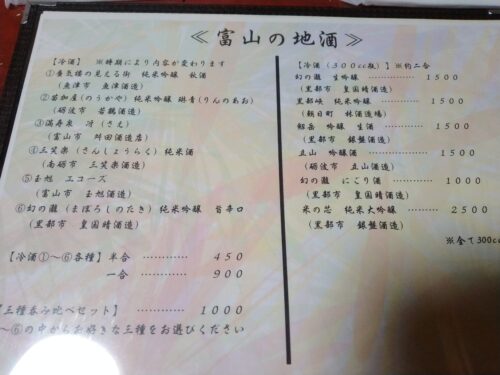 ≪富山の地酒≫
【冷酒】 ※時期により内容が変わります
①蜃気楼の見える街 純米吟醸 秋酒
(魚津市 魚津酒造)
②苗加屋(のうかや)純米吟醸 琳青(りんのあお)
(砺波市 若鶴酒造)
③満寿泉 冴(さえ)
(富山市 舛田酒造店)
④三笑楽(さんしょうらく)純米酒
(南砺市 三笑楽酒造)
⑤玉旭 エコーズ
(富山市 玉旭酒造)
⑥幻の瀧(まぼろしのたき)純米吟醸 旨辛口
(黒部市 皇国晴酒造)
【冷酒①~⑥各種】半合 ………… 450
一合 ………… 900
【三種呑み比べセット】 ………… 1000
~⑥の中からお好きな三種をお選びください
【冷酒(300cc瓶)】※約二合
幻の瀧 生吟醸 ………… 1500
(黒部市 皇国晴酒造)
黒部峡 純米吟醸 ………… 1500
(朝日町 林酒造場)
剱岳 吟醸 生酒 ………… 1500
(黒部市 銀盤酒造)
立山 吟醸酒 ………… 1500
(砺波市 立山酒造)
幻の瀧 にごり酒 ………… 1000
(黒部市 皇国晴酒造)
米の芯 純米大吟醸 ………… 2500
(黒部市 銀盤酒造)
※全て300cc